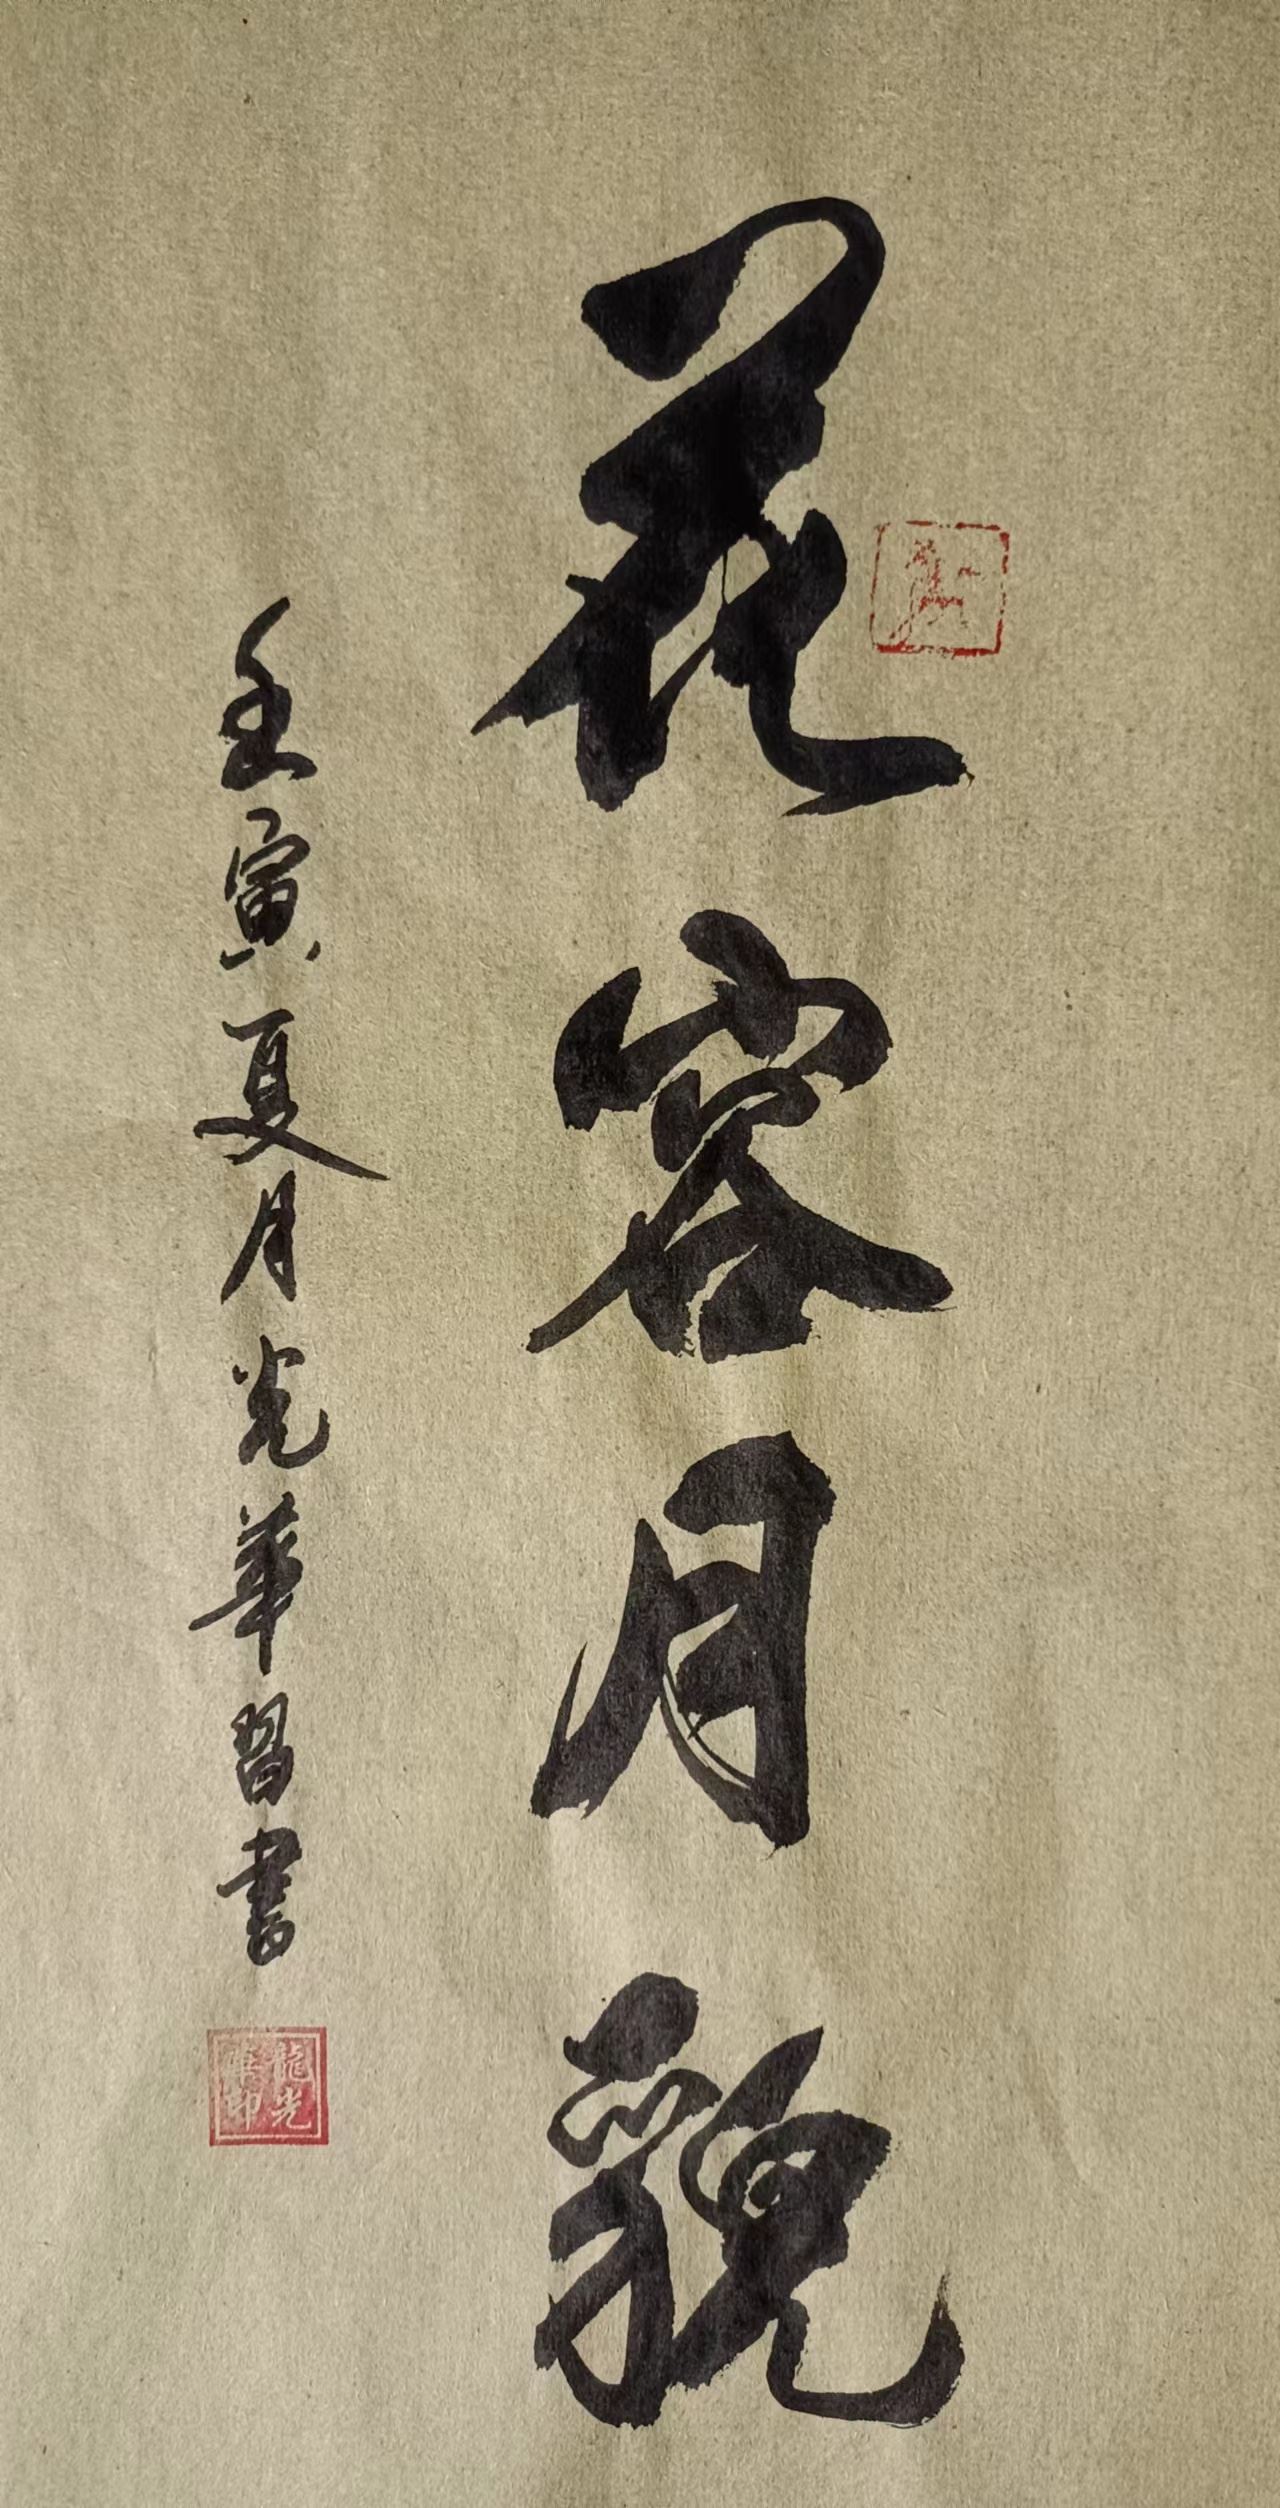 花容月貌
壬寅夏月光華習書
龍光華印